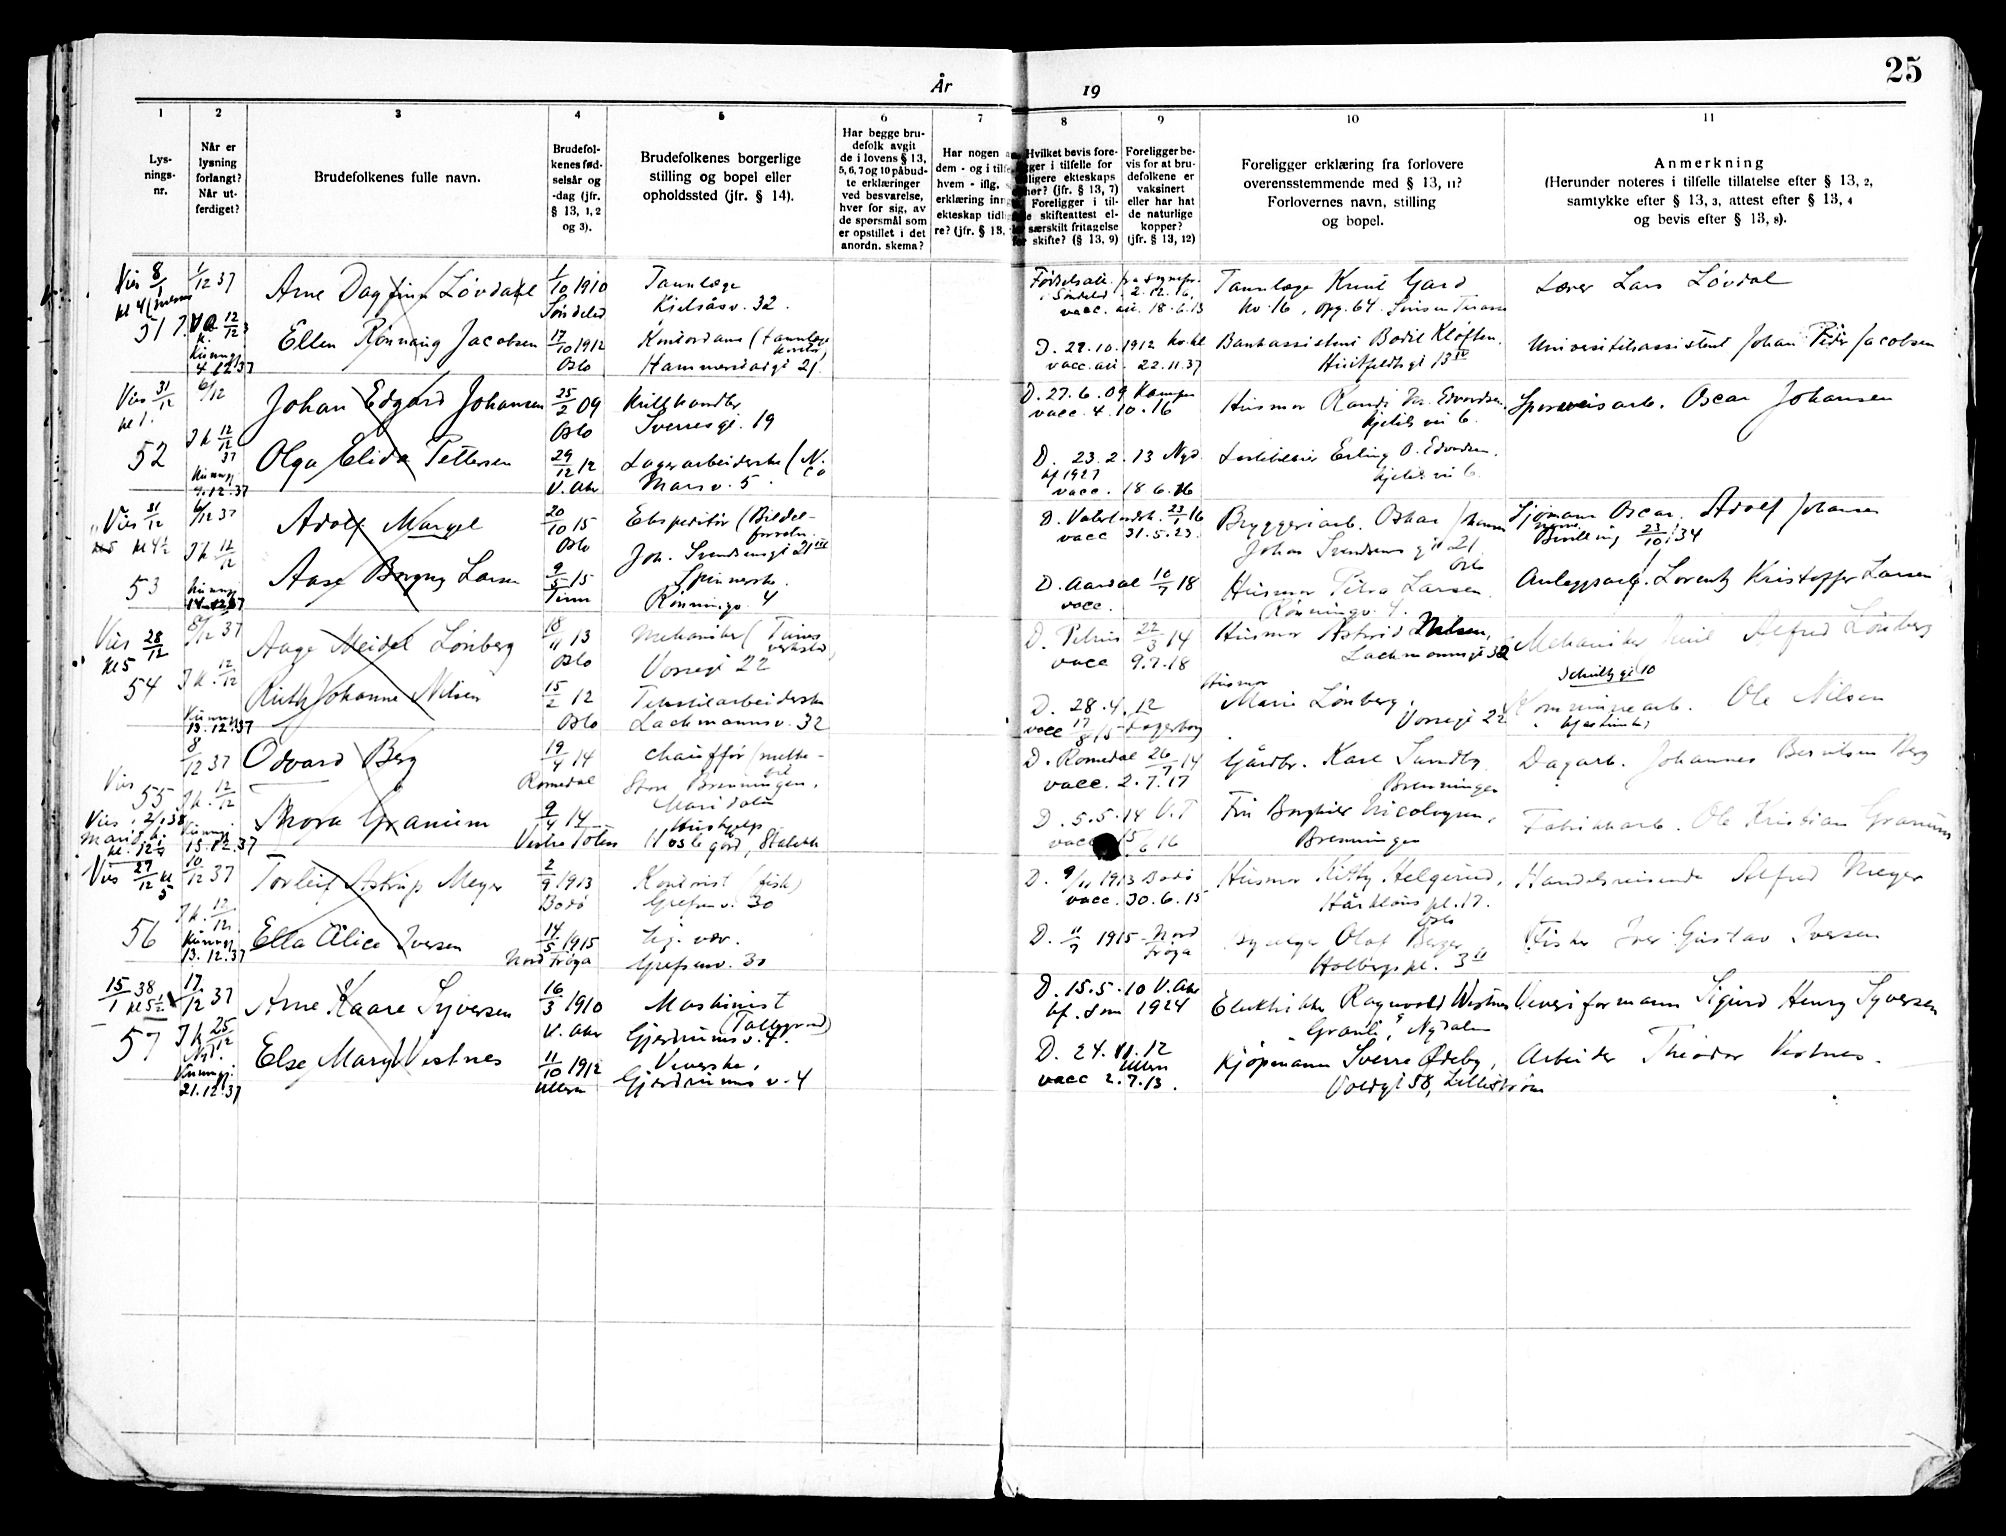 25
År 19
1
2
3
4
5
6
7
8
9
10
11
Lys-
nings-
nr.
Når er
lysning
forlangt?
Når ut-
ferdiget?
Brudefolkenes fulle navn.
Brudefol-
kenes fød-
selsår og
-dag (jfr.
§ 13, 1, 2
og 3).
Brudefolkenes borgerlige
stilling og bopel eller
opholdssted (jfr. § 14).
Har begge bru-
defolk avgit
de i lovens § 13,
5, 6, 7 og 10 påbud-
te erklæringer
ved besvarelse,
hver for sig, av
de spørsmål som
er opstillet i det
anordn. skema?
Har nogen a
dem - og i tilfe
hvem - iflg.
erklæring inng
ekteskap tidlig
re? (jfr. § 13,
Hvilket bevis fore-
ger i tilfelle for
ligere ekteskaps
hør? (jfr. § 13, 7)
Foreligger i til-
le skifteattest el-
særskilt fritagelse
for skifte? (§ 13, 9)
Foreligger be-
vis for at bru-
defolkene er
vaksinert
eller har hat
de naturlige
kopper?
(jfr. § 13, 12)
Foreligger erklæring fra forlovere
overensstemmende med § 13, 11?
Forlovernes navn, stilling
og bopel.
Anmerkning
(Herunder noteres i tilfelle tillatelse efter § 13, 2,
samtykke efter § 13, 3, attest efter § 13, 4
og bevis efter § 13, 8).
Vies 8/1
1/12 37
Arne Dagfinn Løvdal
1/10 1910
Søndeled
Tannlæge
Kjelsåsv. 32.
2.12.16,
vacc. 18.6.13
Tannlæge Knut Gard
Lærer Lars Løvdal
51
12/12
4.12.37
Ellen Rønnaug Jacobsen
17/10 1912
Oslo
Hammerstadgt 21
D. 27.10.1912
vacc. 22.11.37
Bankassistent Bodil Kløften.
Huitfeldtsgt 13 IV
Universitetsassistent Johan Peder Jacobsen
Vies 31/12
kl 1.
6/12
Johan Edgard Johansen
25/2 09
Oslo
Sverresgt. 19
D. 27.6.09 Kampen
vacc. 4.10.16
Husmor Randi Edvardsen.
6.
Sporveisarb. Oscar Johansen
52
J k. 12/12 37
9.12.37
Olga Elida Pettersen
29/12 12
V. Aker
Lagerarbeiderske
Marsv. 5
D. 23.2.13 Nyd.
kf 1927
vacc. 18.6.16
Erling O. Edvardsen.
6.
Vies 31/12
kl 4½
6/12 37
Adolf Margel
20/10 15
Oslo
Ekspeditør
Joh. Svendsensgt 21 III
D. 23/1 16
vacc 31.5.23.
Bryggeriarb. Oskar Johansen
Johan Svendsens gt 21
Oslo
Sjømann Oscar Adolf Johansen
Bevilling 23/10 34
53
J k 12/12
14.12.37
Aase Borgny Larsen
9/5 15
Tinn
Spinnerske.
Rønningv. 4
D. Aardal 10/7 18
vacc.
Husmor Petra Larsen.
Rønningv. 4.
Anleggsarb. Lorentz Kristoffer Larsen
Vies 28/12
kl 5
8/12 37
Aage Meidel Lønberg
18/11 13
Oslo
Mekaniker
Vossegt 22
D. Petrus 22/3 14
vacc 9.7.18
Husmor Astrid Nilsen,
Lachmannsgt 32
Mekaniker Emil Alfred Lønberg
54
J k. 12/12
13.12.37
Ruth Johanne Nilsen
15/2 12
Oslo
Tekstilarbeiderske
Lachmannsv. 32
D. 28.4.12
vacc 17/8 15 Fagerborg
Husmor
Marie Lønberg,
Vossegt 22
Schultzgt 10
Kommunearb. Ole Nilsen
8/12 37
Odvard Berg
19/4 14
Romedal
chauffør
Store Brenningen,
Maridalen
D. Romedal 26/7 14
vacc. 2.7.17
Gårdbr. Kare Sundby
Brenningen
Dagarb. Johannes Berntsen Berg
Vies
55
J k. 12/12
15.12.37
Thora Granum
9/4 14
Vestre Toten
Hushjelp
D. 5.5.14 V.T
vacc 15/6 16
Fru Borghild Nicolaysen,
Brenningen
Fabrikkarb. Ole Kristian Granum
Vies 2/1 38
kl. 12½
Vies 27/12 kl 5
10/12 37
Torleif Astrup Meyer
2/9 1913
Bodø
Kontorist
Grefsenv. 30
D. 9/11 1913 Bodø
vacc. 30.6.15
Husmor Kitty Helgerud,
pl. 17.
Oslo
Handelsreisende Alfred Meyer
56
J k. 12/12
13.12.37
Ella Alice Iversen
14/5 1915
Nord Frøya
Grefsenv. 30
D. 11/7 1915 Nord
Frøya
Olaf Berger
Holbergs pl. 3 II
Fisker Iver Gustav Iversen
15/1 38
kl 5½
17/12 37
Arne Kaare Syversen
16/3 1910
V. Aker
Maskinist
Gjerdrumsv. 4.
D. 15.5.10 V. Aker
kf. som 1924
Elektriker Ragnvald Westnes
Granli, Nydalen
Veveriformann Sigurd Henry Syversen
57
J k 25/12
21.12.37
Else Mary Vestnes
11/10 1912
Ullern
Veverske,
Gjerdrums v. 4
D. 24.11.12
Ullern
vacc 2.7.13.
Kjøpmann Sverre Ødeby,
Voldgt 58, Lillestrøm
Arbeider Theodor Vestnes.